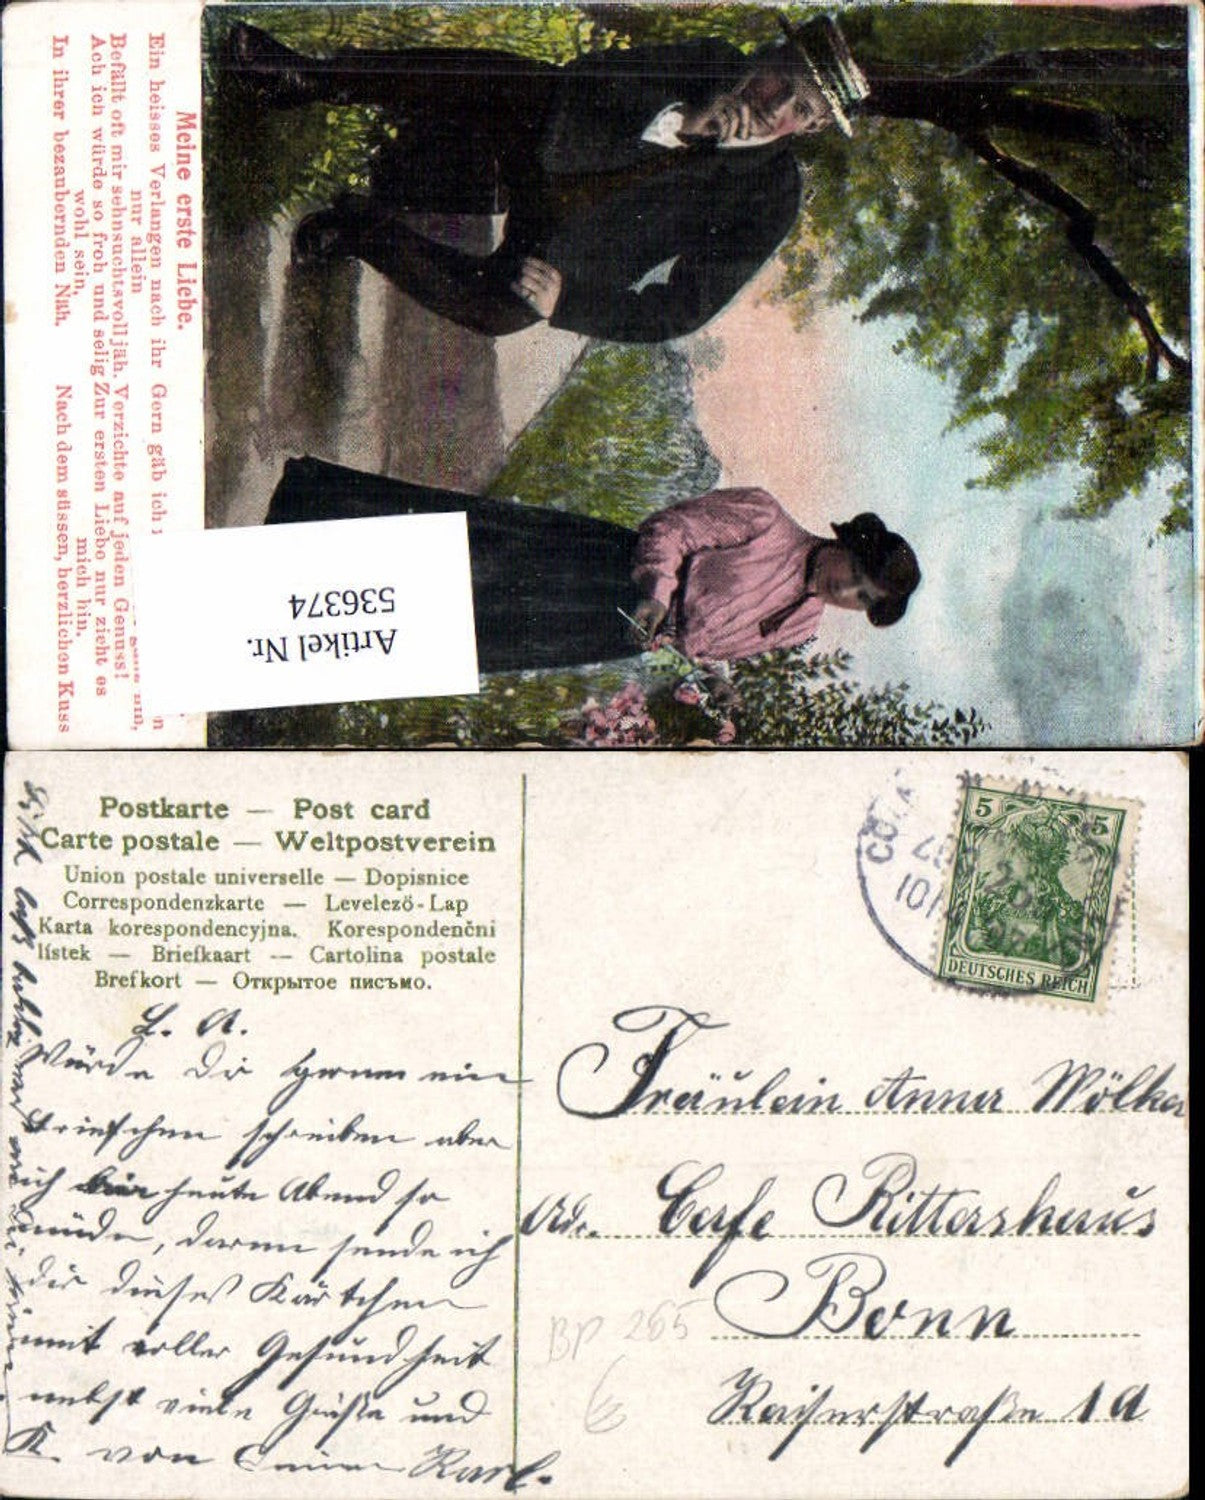 Meine erste Liebe.
Ein heisses Verlangen nach ihr
nur allein
Befällt oft mir sehnsuchtsvoll jäh.
Ach ich würde so froh und selig
wohl sein,
In ihrer bezaubernden Näh.
Gern gäb ich
hin,
Verzichte auf jeden Genuss!
Zur ersten Liebe nur zieht es
mich hin.
Nach dem süssen, herzlichen Kuss
Artikel Nr.
536374
Postkarte — Post card
Carte postale — Weltpostverein
Union postale universelle — Dopisnice
Correspondenzkarte — Levelező-Lap
Karta korespondencyjna. Korespondenční
lístek — Briefkaart — Cartolina postale
Brefkort — Открытое письмо.
L. A.
Würde Dir gerne ein
Briefchen schreiben aber
ich bin heute Abend so
müde, darum sende ich
dir dieses Kärtchen
mit voller Gesundheit
nebst viele Grüße und
K. von Deinem Karl.
5 5
DEUTSCHES REICH
Fräulein Anna Wölker
Adr. Cafe Rittershaus
Bonn
Kaiserstraße 1a
BP 265